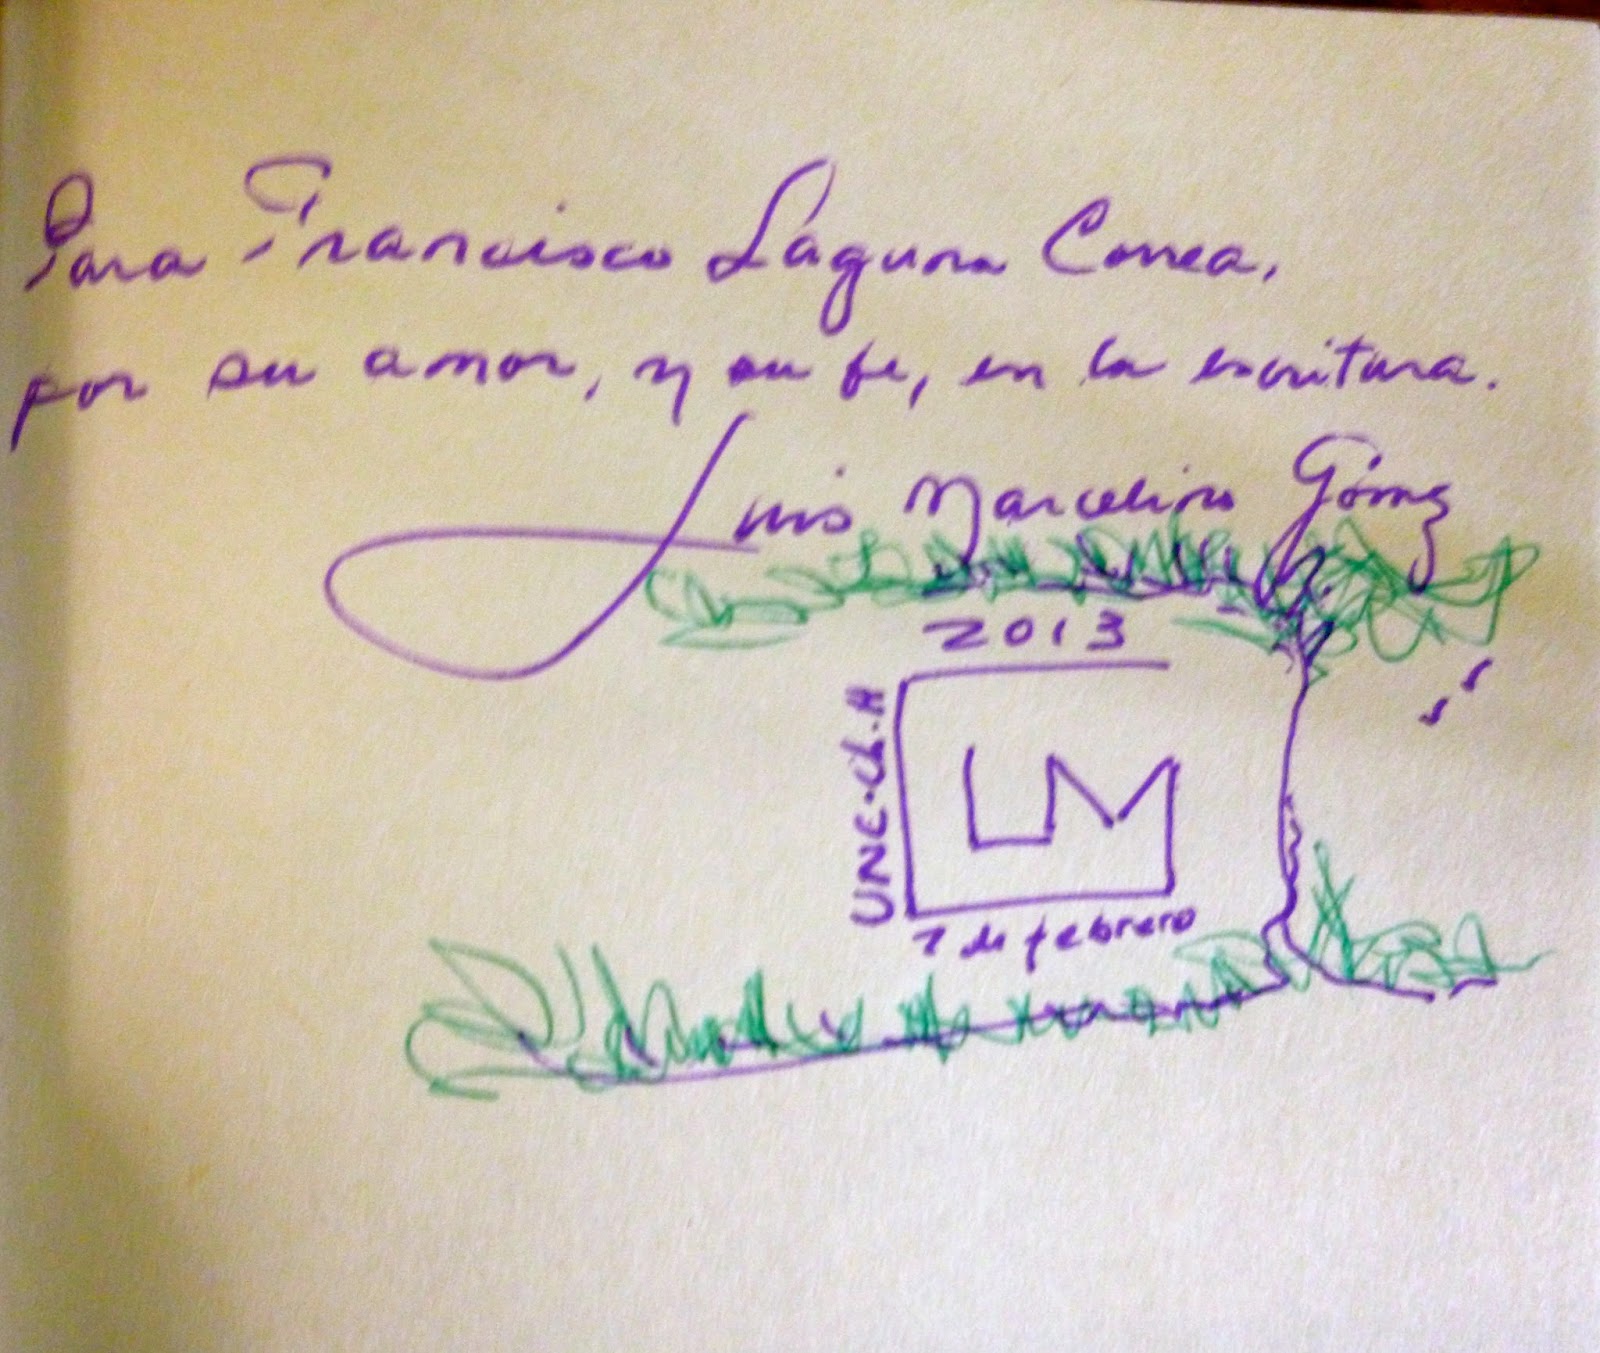 Para Francisco Laguna Correa,
por su amor, y su fe, en la escritura.
Luis Marcelino Gómez
2013
UNC-Ch.H
LM
7 de febrero